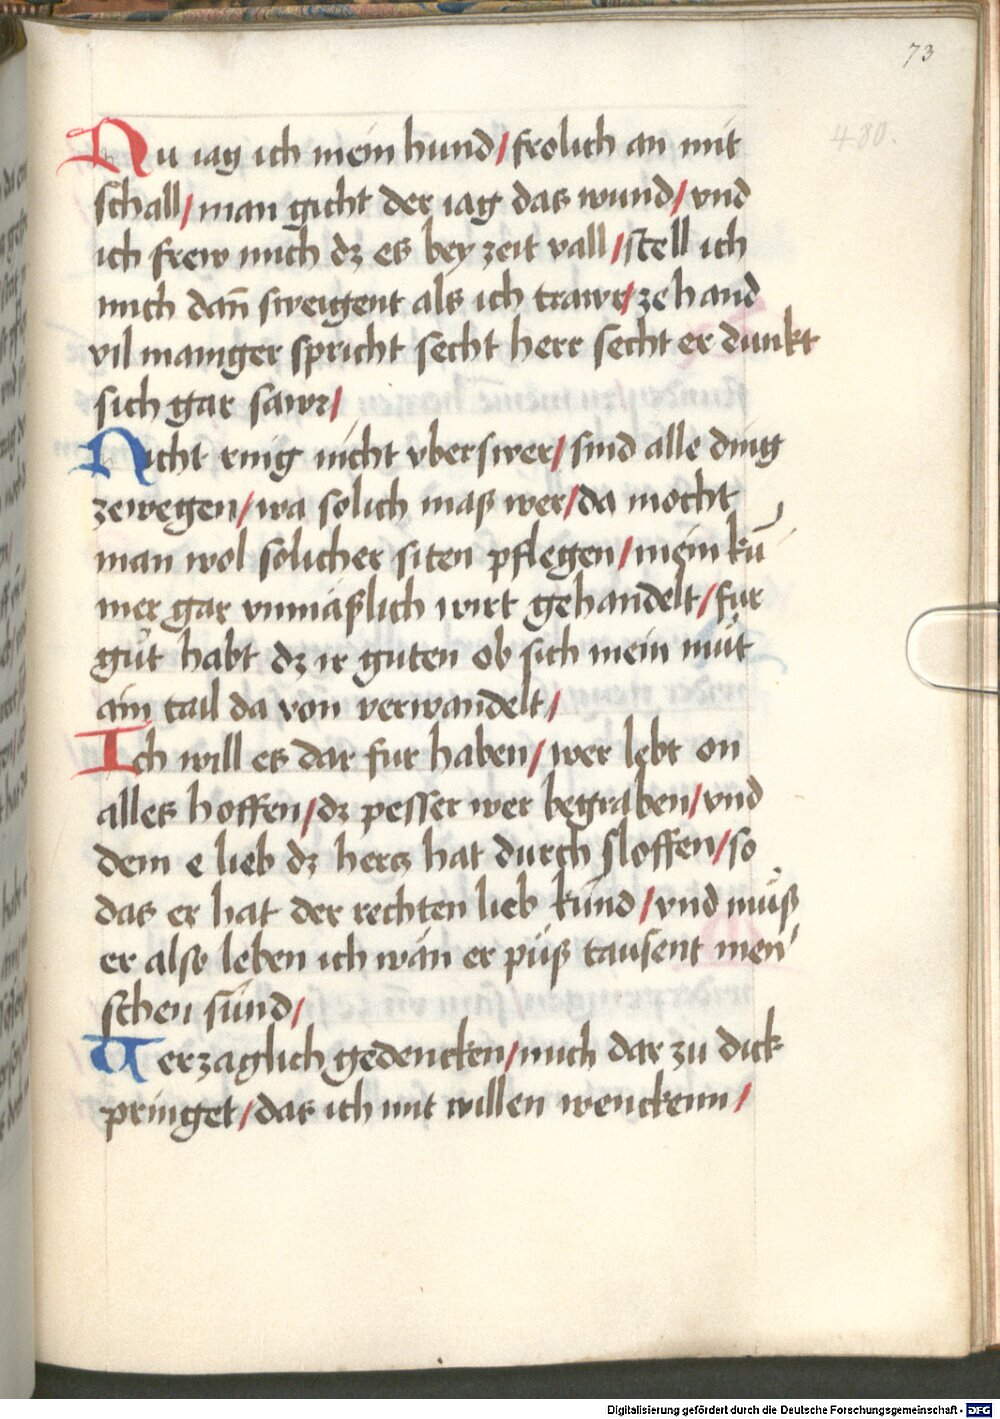 73
480.
Nu iag ich mein hund / frolich an mit
schall / man gicht der iag das wund / vnd
ich frew mich dz es bey zeit vall / stell ich
mich dan̄ sweigent als ich trawr / ze hand
vil maniger spricht secht herr secht er dunkt
sich gar sawr /
Nicht ring nicht vberswer / sind alle ding
zewegen / wa solich maß wer / da mocht
man wol solicher siten pflegen / mein kū
mer gar vnmäßlich wirt gehandelt / fur
gůt habt dz ir guten ob sich mein můt
ain tail da von verwandelt /
Ich will es dar fur haben / wer lebt on
alles hoffen / dz pesser wer begraben / vnd
dem e lieb dz hercz hat durch sloffen / so
das er hat der rechten lieb künd / vnd můß
er also leben ich wän er püß tausent men
schen sünd /
Verzaglich gedencken / mich dar zu dick
pringet / das ich mit willen wenckenn /
Digitalisierung gefördert durch die Deutsche Forschungsgemeinschaft - DFG